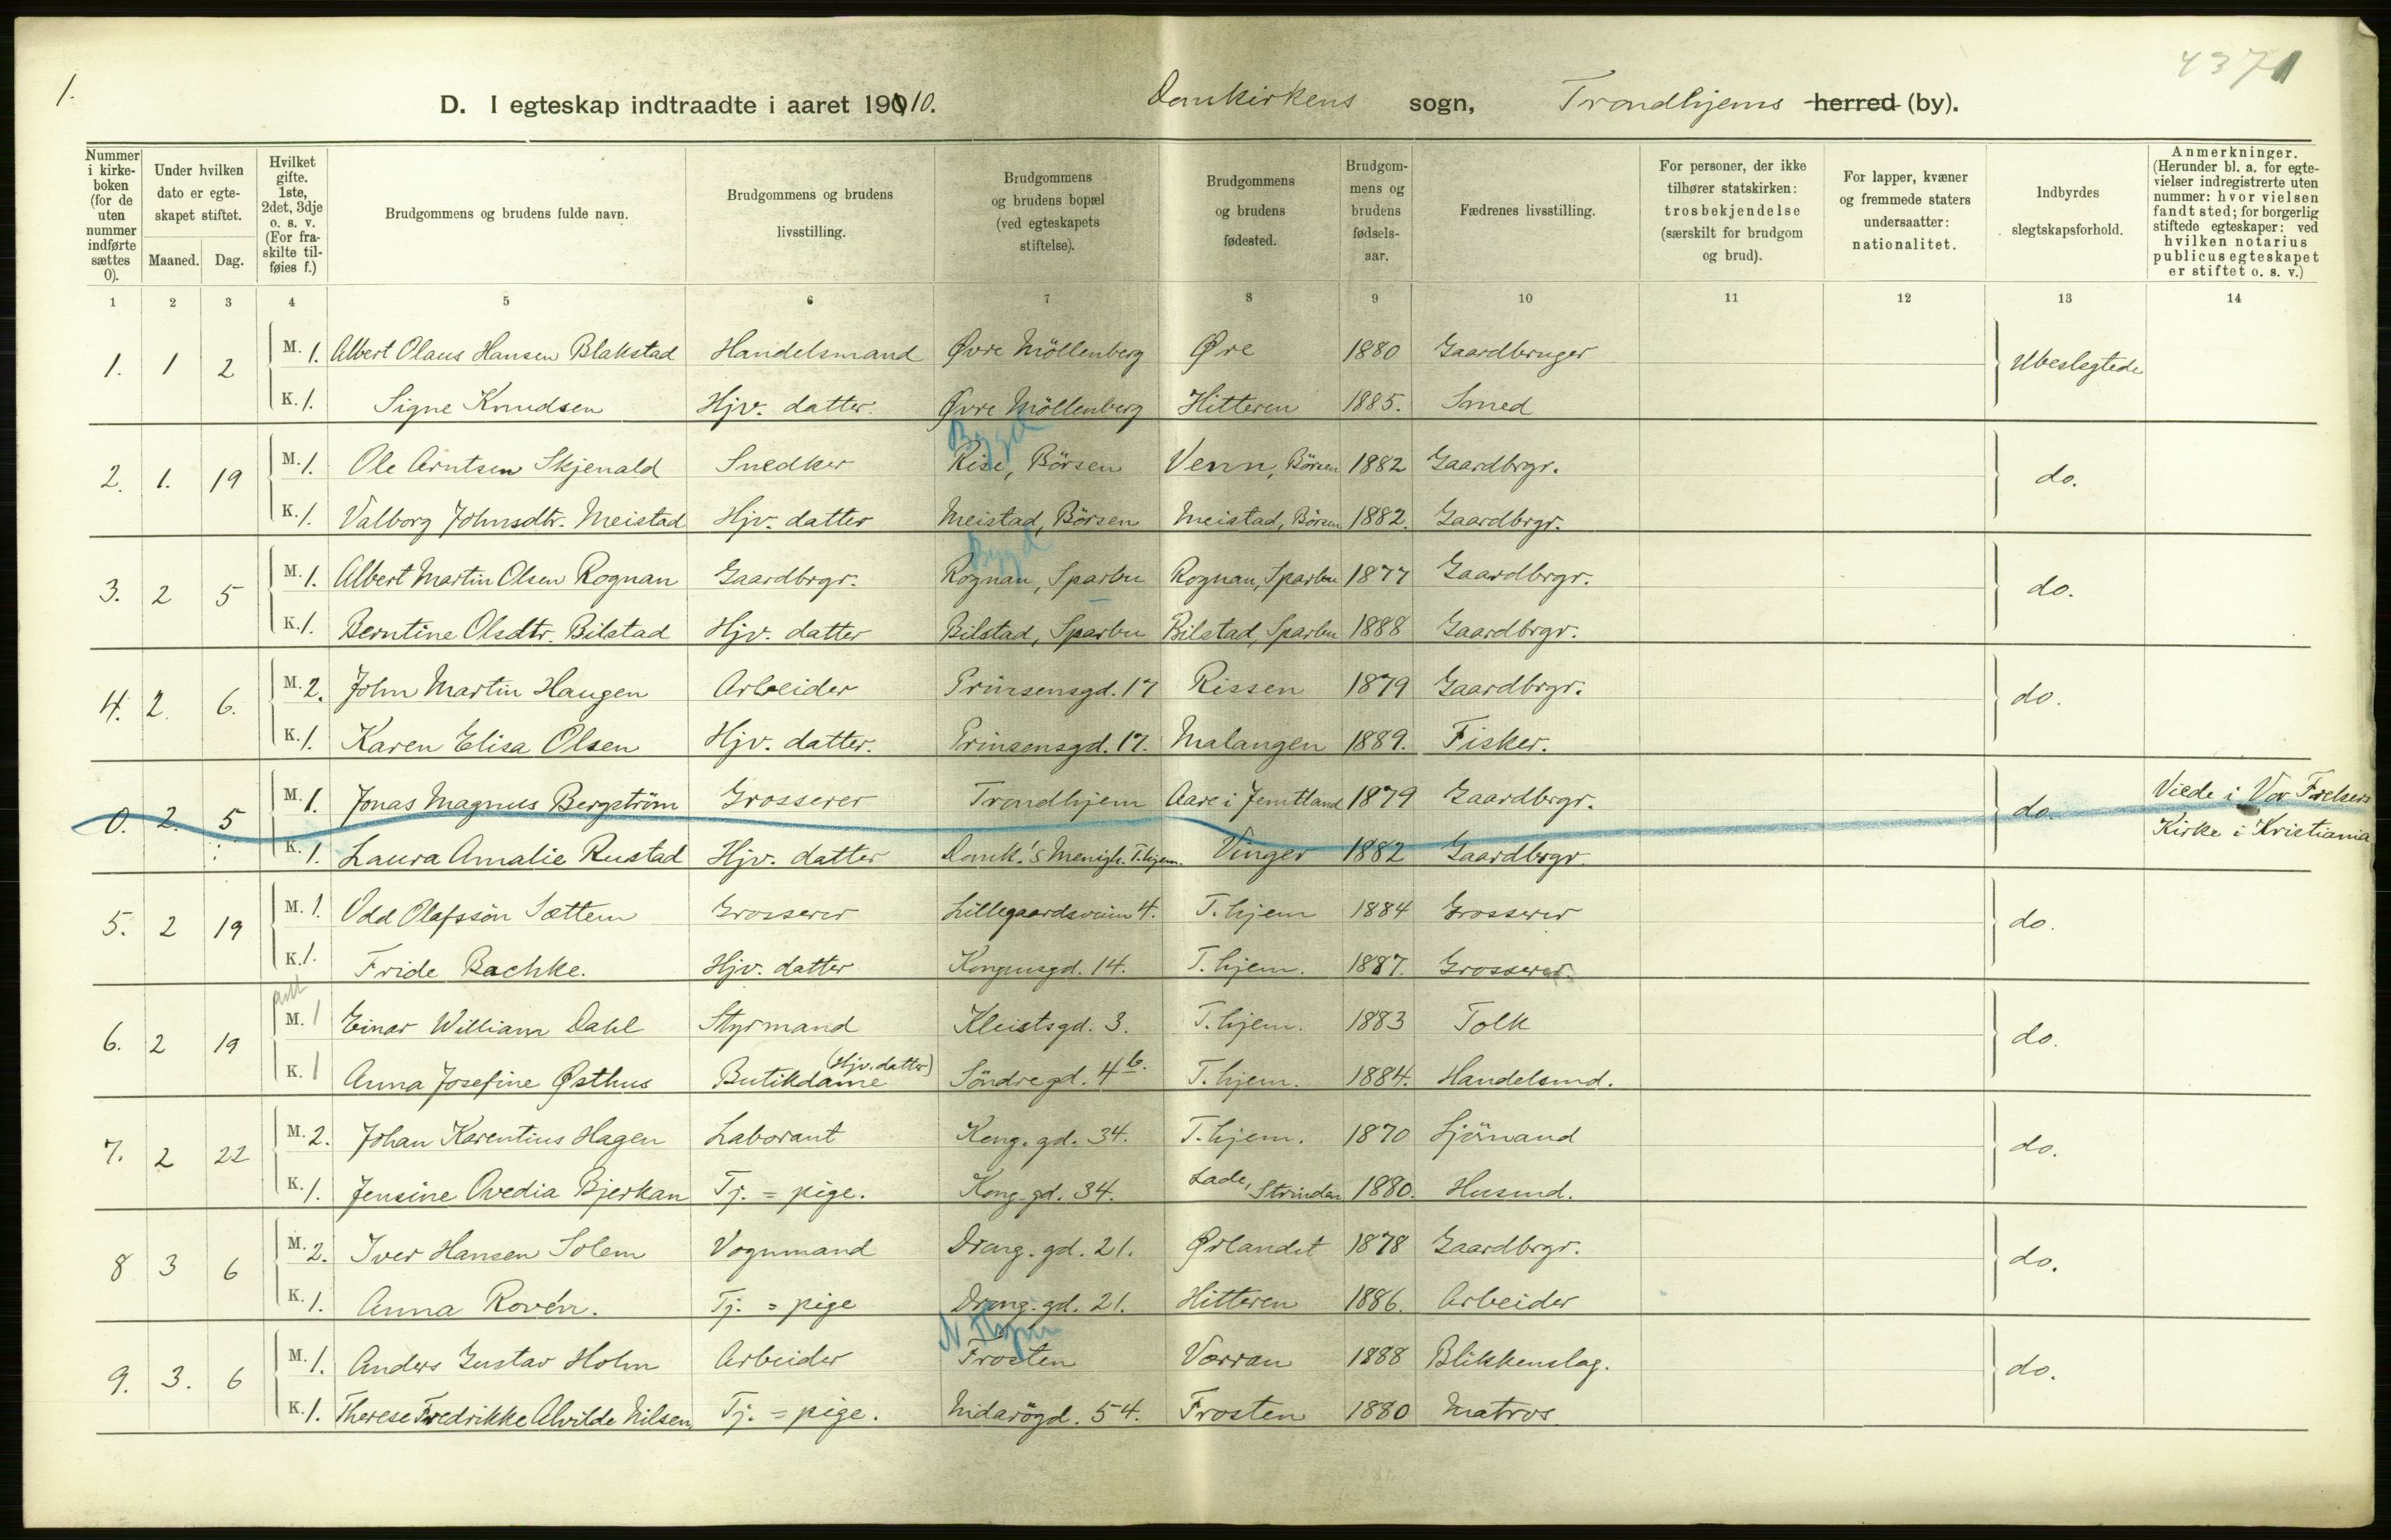 1.
4371
D. I egteskap indtraadte i aaret 1910. Domkirkens sogn, Trondhjems herred (by).
Nummer i kirke-boken (for de uten nummer indførte sættes 0).
Under hvilken dato er egte-skapet stiftet.
Maaned. Dag.
Hvilket gifte. 1ste, 2det, 3dje o. s. v. (For fra-skilte til-føies f.)
Brudgommens og brudens fulde navn.
Brudgommens og brudens livsstilling.
Brudgommens og brudens bopæl (ved egteskapets stiftelse).
Brudgommens og brudens fødested.
Brudgom-mens og brudens fødsels-aar.
Fædrenes livsstilling.
For personer, der ikke tilhører statskirken: trosbekjendelse (særskilt for brudgom og brud).
For lapper, kvæner og fremmede staters undersaatter: nationalitet.
Indbyrdes slegtskapsforhold.
Anmerkninger. (Herunder bl. a. for egte-vielser indregistrerte uten nummer: hvor vielsen fandt sted; for borgerlig stiftede egteskaper: ved hvilken notarius publicus egteskapet er stiftet o. s. v.)
1 2 3 4 5 6 7 8 9 10 11 12 13 14
1. 1 2 M. 1. Albert Olaus Hansen Blakstad Handelsmand Øvre Möllenberg Øre 1880 Gaardbruger Ubeslegtede
K. 1. Signe Knudsen Hjv. datter. Øvre Möllenberg Hitteren 1885. Smed
Bygd
2. 1. 19 M. 1. Ole Arntsen Skjenald Snedker Rise, Börsen Venn, Börsen 1882 Gaardbrgr. do.
K. 1. Valborg Johnsdtr. Meistad Hjv. datter Meistad, Börsen Meistad, Börsen 1882. Gaardbrgr.
Bygd
3. 2 5 M. 1. Albert Martin Olsen Rognan Gaardbrgr. Rognan, Sparbu Rognan, Sparbu 1877 Gaardbrgr. do.
K. 1. Berntine Olsdtr. Bilstad Hjv. datter Bilstad, Sparbu Bilstad, Sparbu 1888 Gaardbrgr.
4. 2. 6. M. 2. John Martin Haugen Arbeider Prinsensgd. 17 Rissen 1879 Gaardbrgr. do.
K. 1. Karen Elisa Olsen Hjv. datter. Prinsensgd. 17. Malangen 1889. Fisker.
0. 2. 5 M. 1. Jonas Magnus Bergström Grosserer Trondhjem Aare i Jemtland 1879 Gaardbrgr. do. Viede i Vor Frelsers
K. 1. Laura Amalie Rustad Hjv. datter Domk.'s Menigh. T.hjem. Vinger 1882 Gaardbrgr. Kirke i Kristiania
5. 2 19 M. 1. Odd Olafssön Sættem Grosserer Lillegaardsveien 4. T.hjem 1884 Grosserer do.
K. 1. Fride Bachke. Hjv. datter Kongensgd. 14. T.hjem. 1887. Grosserer
6. 2 19 M. 1 Einar William Dahl Styrmand Kleistsgd. 3. T.hjem. 1883 Tolk do.
K. 1 Anna Josefine Østhus Butikdame (Hjv. datter) Söndregd. 4 b. T.hjem. 1884. Handelsmd.
7. 2 22 M. 2. Johan Karentius Hagen Laborant Kong. gd. 34. T.hjem. 1870 Sjömand do.
K. 1. Jensine Ovedia Bjerkan Tj. = pige. Kong. gd. 34. Lade, Strinden 1880. Husmd.
8 3 6 M. 2. Iver Hansen Solem Vognmand Drong. gd. 21. Ørlandet 1878 Gaardbrgr. do.
K. 1. Anna Rovén. Tj. = pige Drong. gd. 21. Hitteren 1886. Arbeider
9. 3. 6 M. 1. Anders Gustav Holm Arbeider Frosten Værran 1888 Blikkenslag. do.
K. 1. Therese Fredrikke Alvilde Nilsen Tj. = pige. Nidarögd. 54. Frosten 1880 Matros.